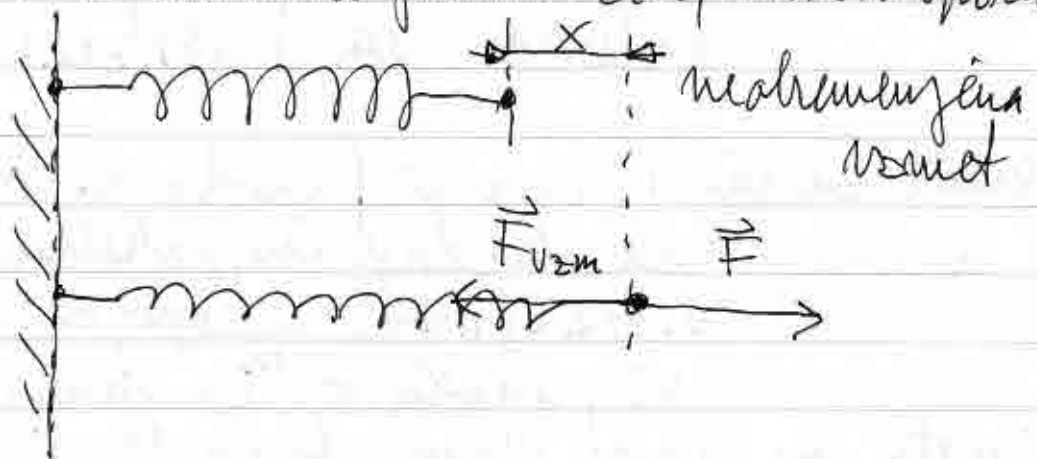 X
neobremenjena
vzmet
F⃗vzm F⃗